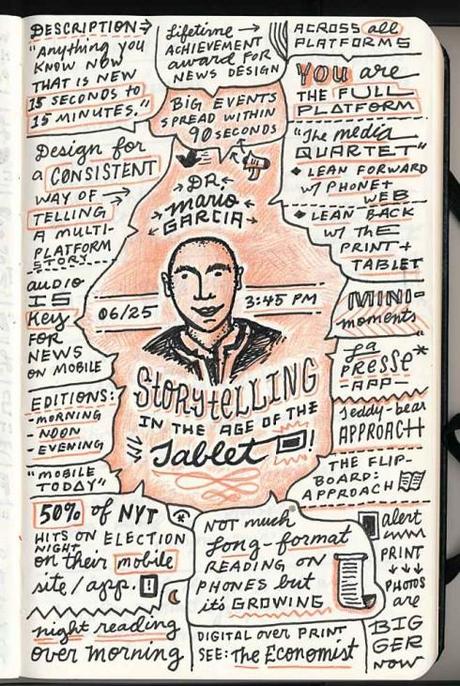 DESCRIPTION→
"Anything you
KNOW NOW
THAT IS NEW
15 SECONDS TO
15 MINUTES."
Lifetime →
ACHIEVEMENT
award FOR
NEWS DESIGN
ACROSS all
PLATFORMS
BIG EVENTS
SPREAD WITHIN
90 SECONDS
YOU are
THE FULL
PLATFORM
Design for
a CONSISTENT
WAY OF →
TELLING
A MULTI-
PLATFORM
STORY
"The media
QUARTET"
• LEAN FORWARD
W/ PHONE+
WEB
• LEAN BACK
W/ THE
PRINT+
TABLET
DR.
mario
GARCIA
06/25
3:45 PM
STORYTELLING
IN THE AGE OF THE
Tablet !
audio
IS
Key
FOR
NEWS
ON MOBILE
EDITIONS:
-MORNING
-NOON
-EVENING
"MOBILE
TODAY"
MINI-
moments
La
PRESSE*
-APP-
Teddy-bear
APPROACH
THE FLIP-
BOARD:
APPROACH
50% of NYT
HITS ON ELECTION
NIGHT
on their mobile
site/app.
night reading
over morning
NOT much
long-format
READING ON
PHONES but
it's GROWING
DIGITAL over PRINT
SEE: The Economist
alert
PRINT
↓↓↓
PHOTOS
are
BIG
GER
NOW